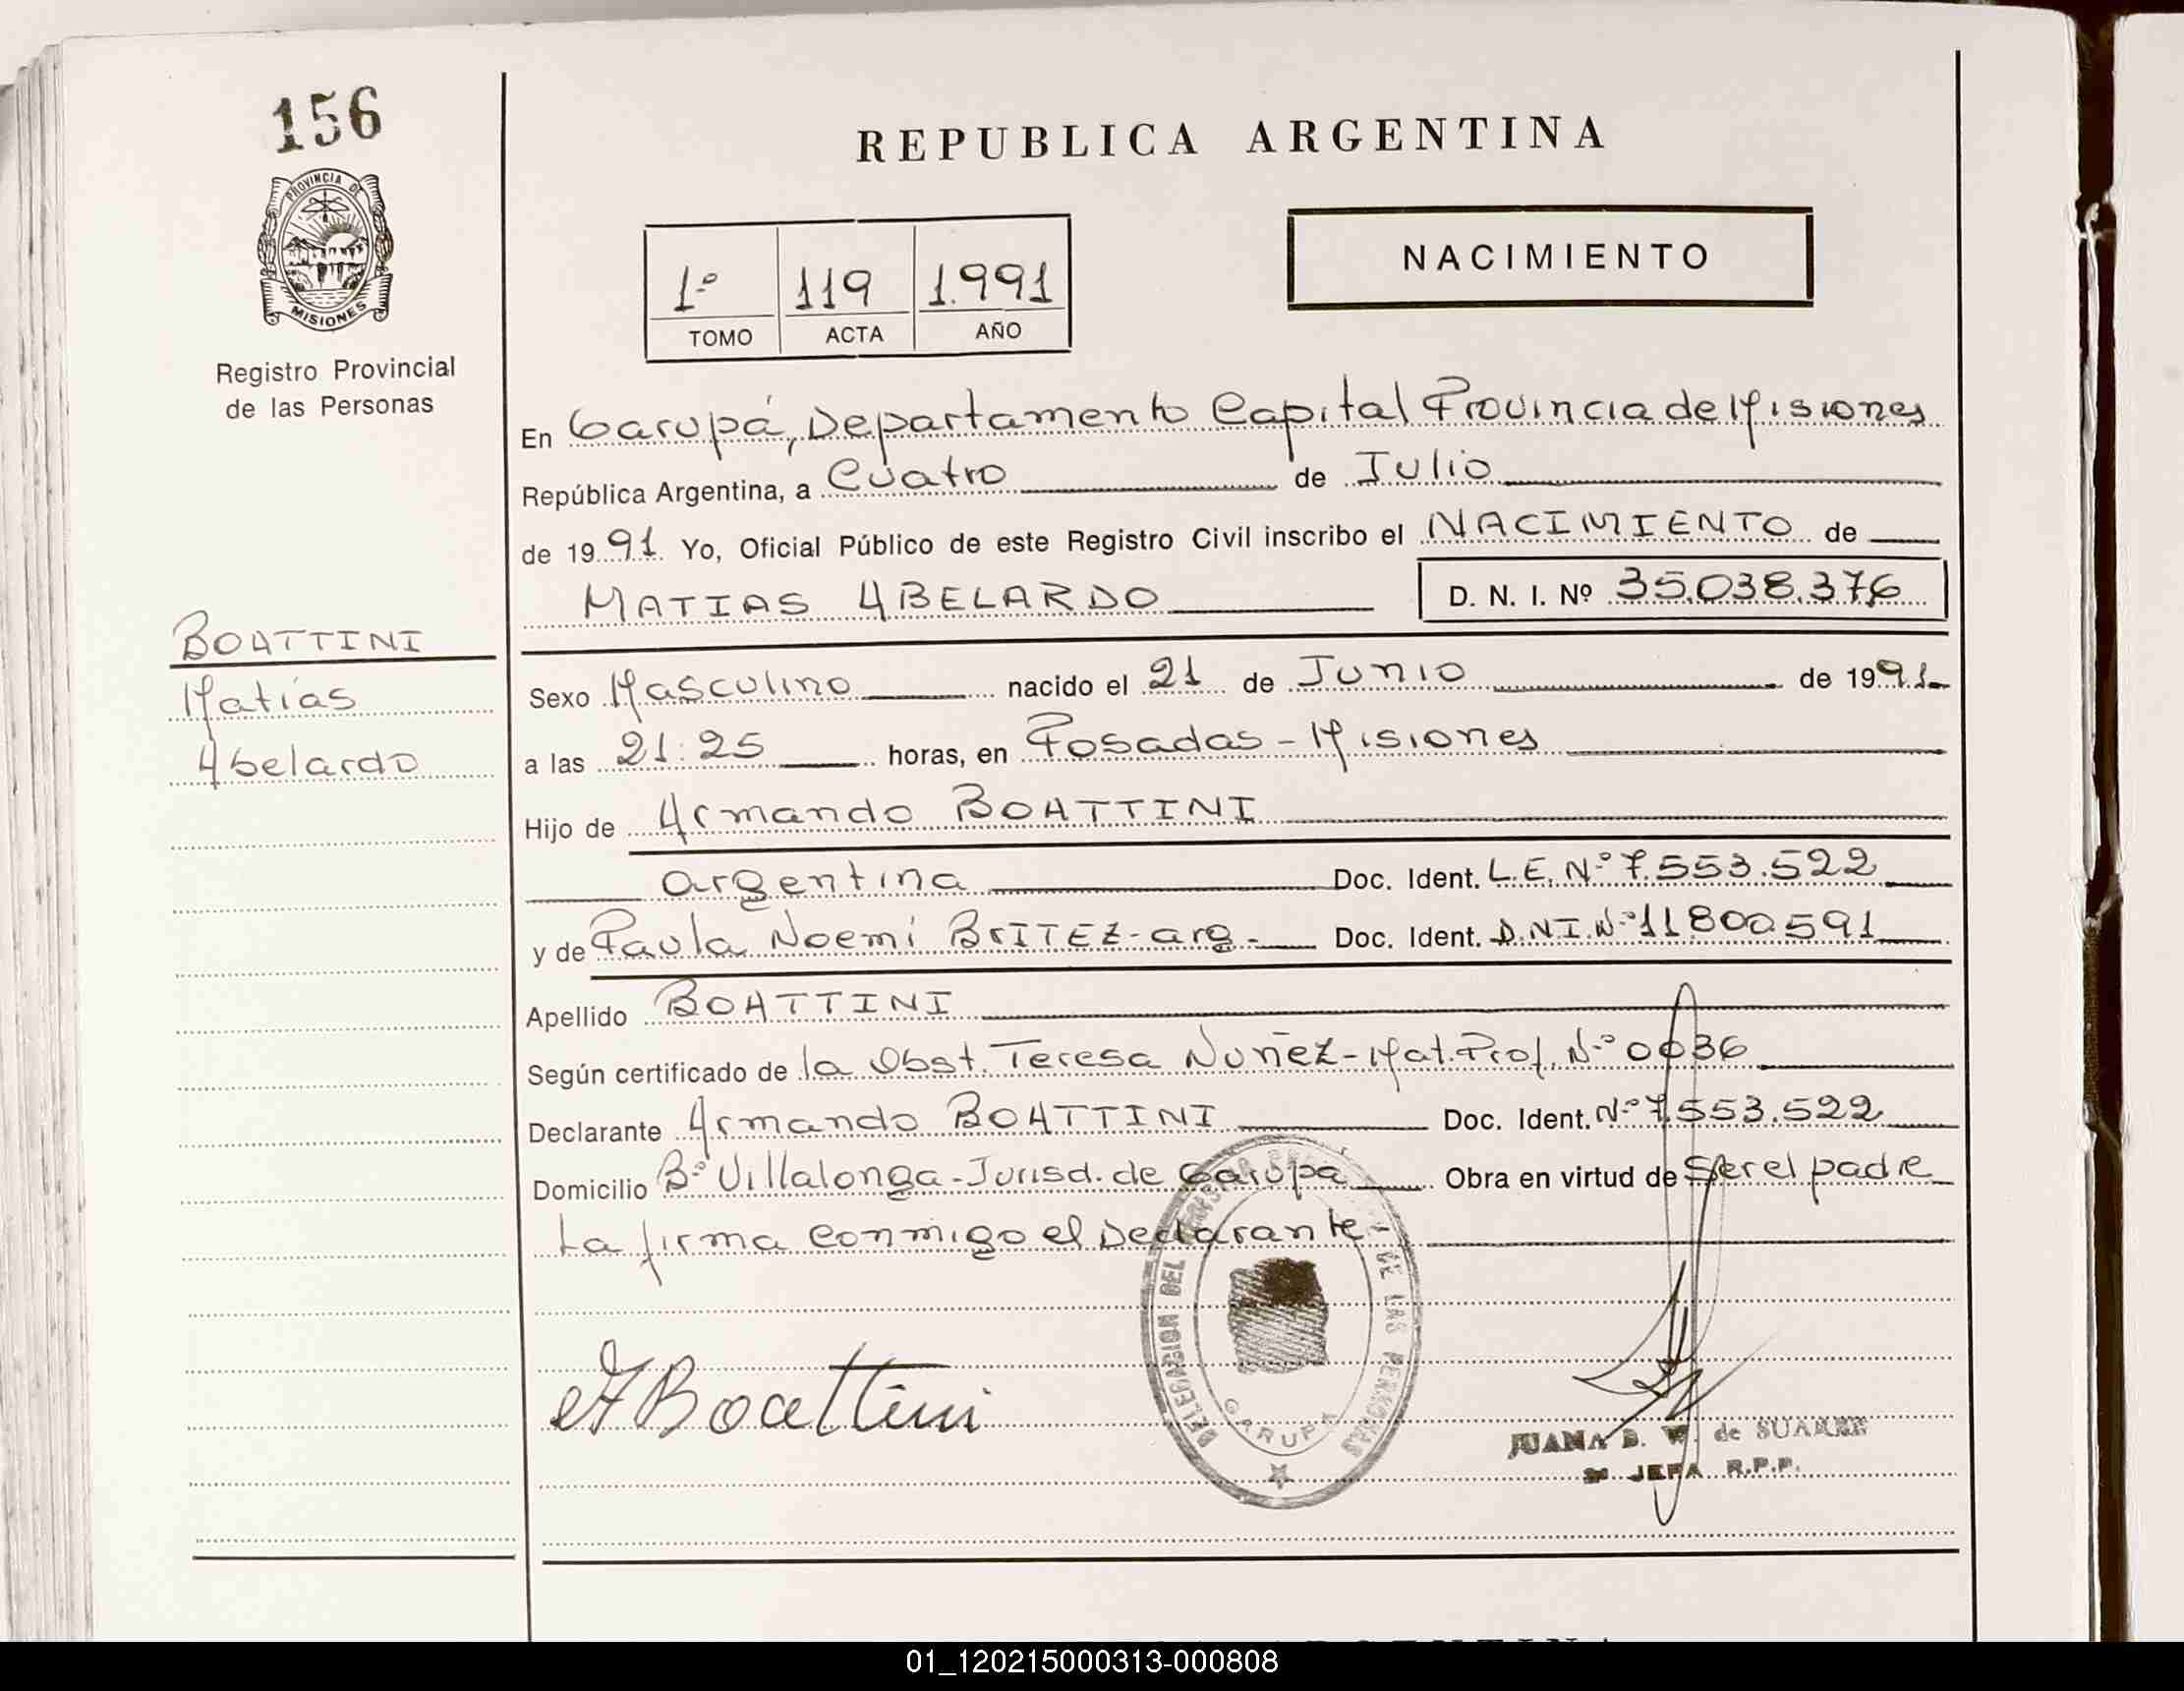 156
PROVINCIA DE
MISIONES
Registro Provincial
de las Personas
REPUBLICA ARGENTINA
NACIMIENTO
1º 119 1.991
TOMO ACTA AÑO
En Garupá, Departamento Capital Provincia de Misiones
República Argentina, a Cuatro de Julio
de 1991 Yo, Oficial Público de este Registro Civil inscribo el NACIMIENTO de
MATIAS ABELARDO D. N. I. Nº 35.038.376
BOATTINI
Matías
Abelardo
Sexo Masculino nacido el 21 de Junio de 1991
a las 21:25 horas, en Posadas - Misiones
Hijo de Armando BOATTINI
argentina Doc. Ident. L.E. Nº 7.553.522
y de Paula Noemí BrITEZ - arg - Doc. Ident. D.N.I. Nº 11800591
Apellido BOATTINI
Según certificado de la Obst. Teresa Nuñez - Mat. Prof. Nº 0036
Declarante Armando BOATTINI Doc. Ident. Nº 7.553.522
Domicilio Bº Villalonga - Jurisd. de Garupa Obra en virtud de Ser el padre
La firma conmigo el Declarante -
A Boattini
DELEGACION DEL DE LAS PERSONAS
GARUPA
JUANA de SUAREZ
JEFA R.P.P.
01_120215000313-000808